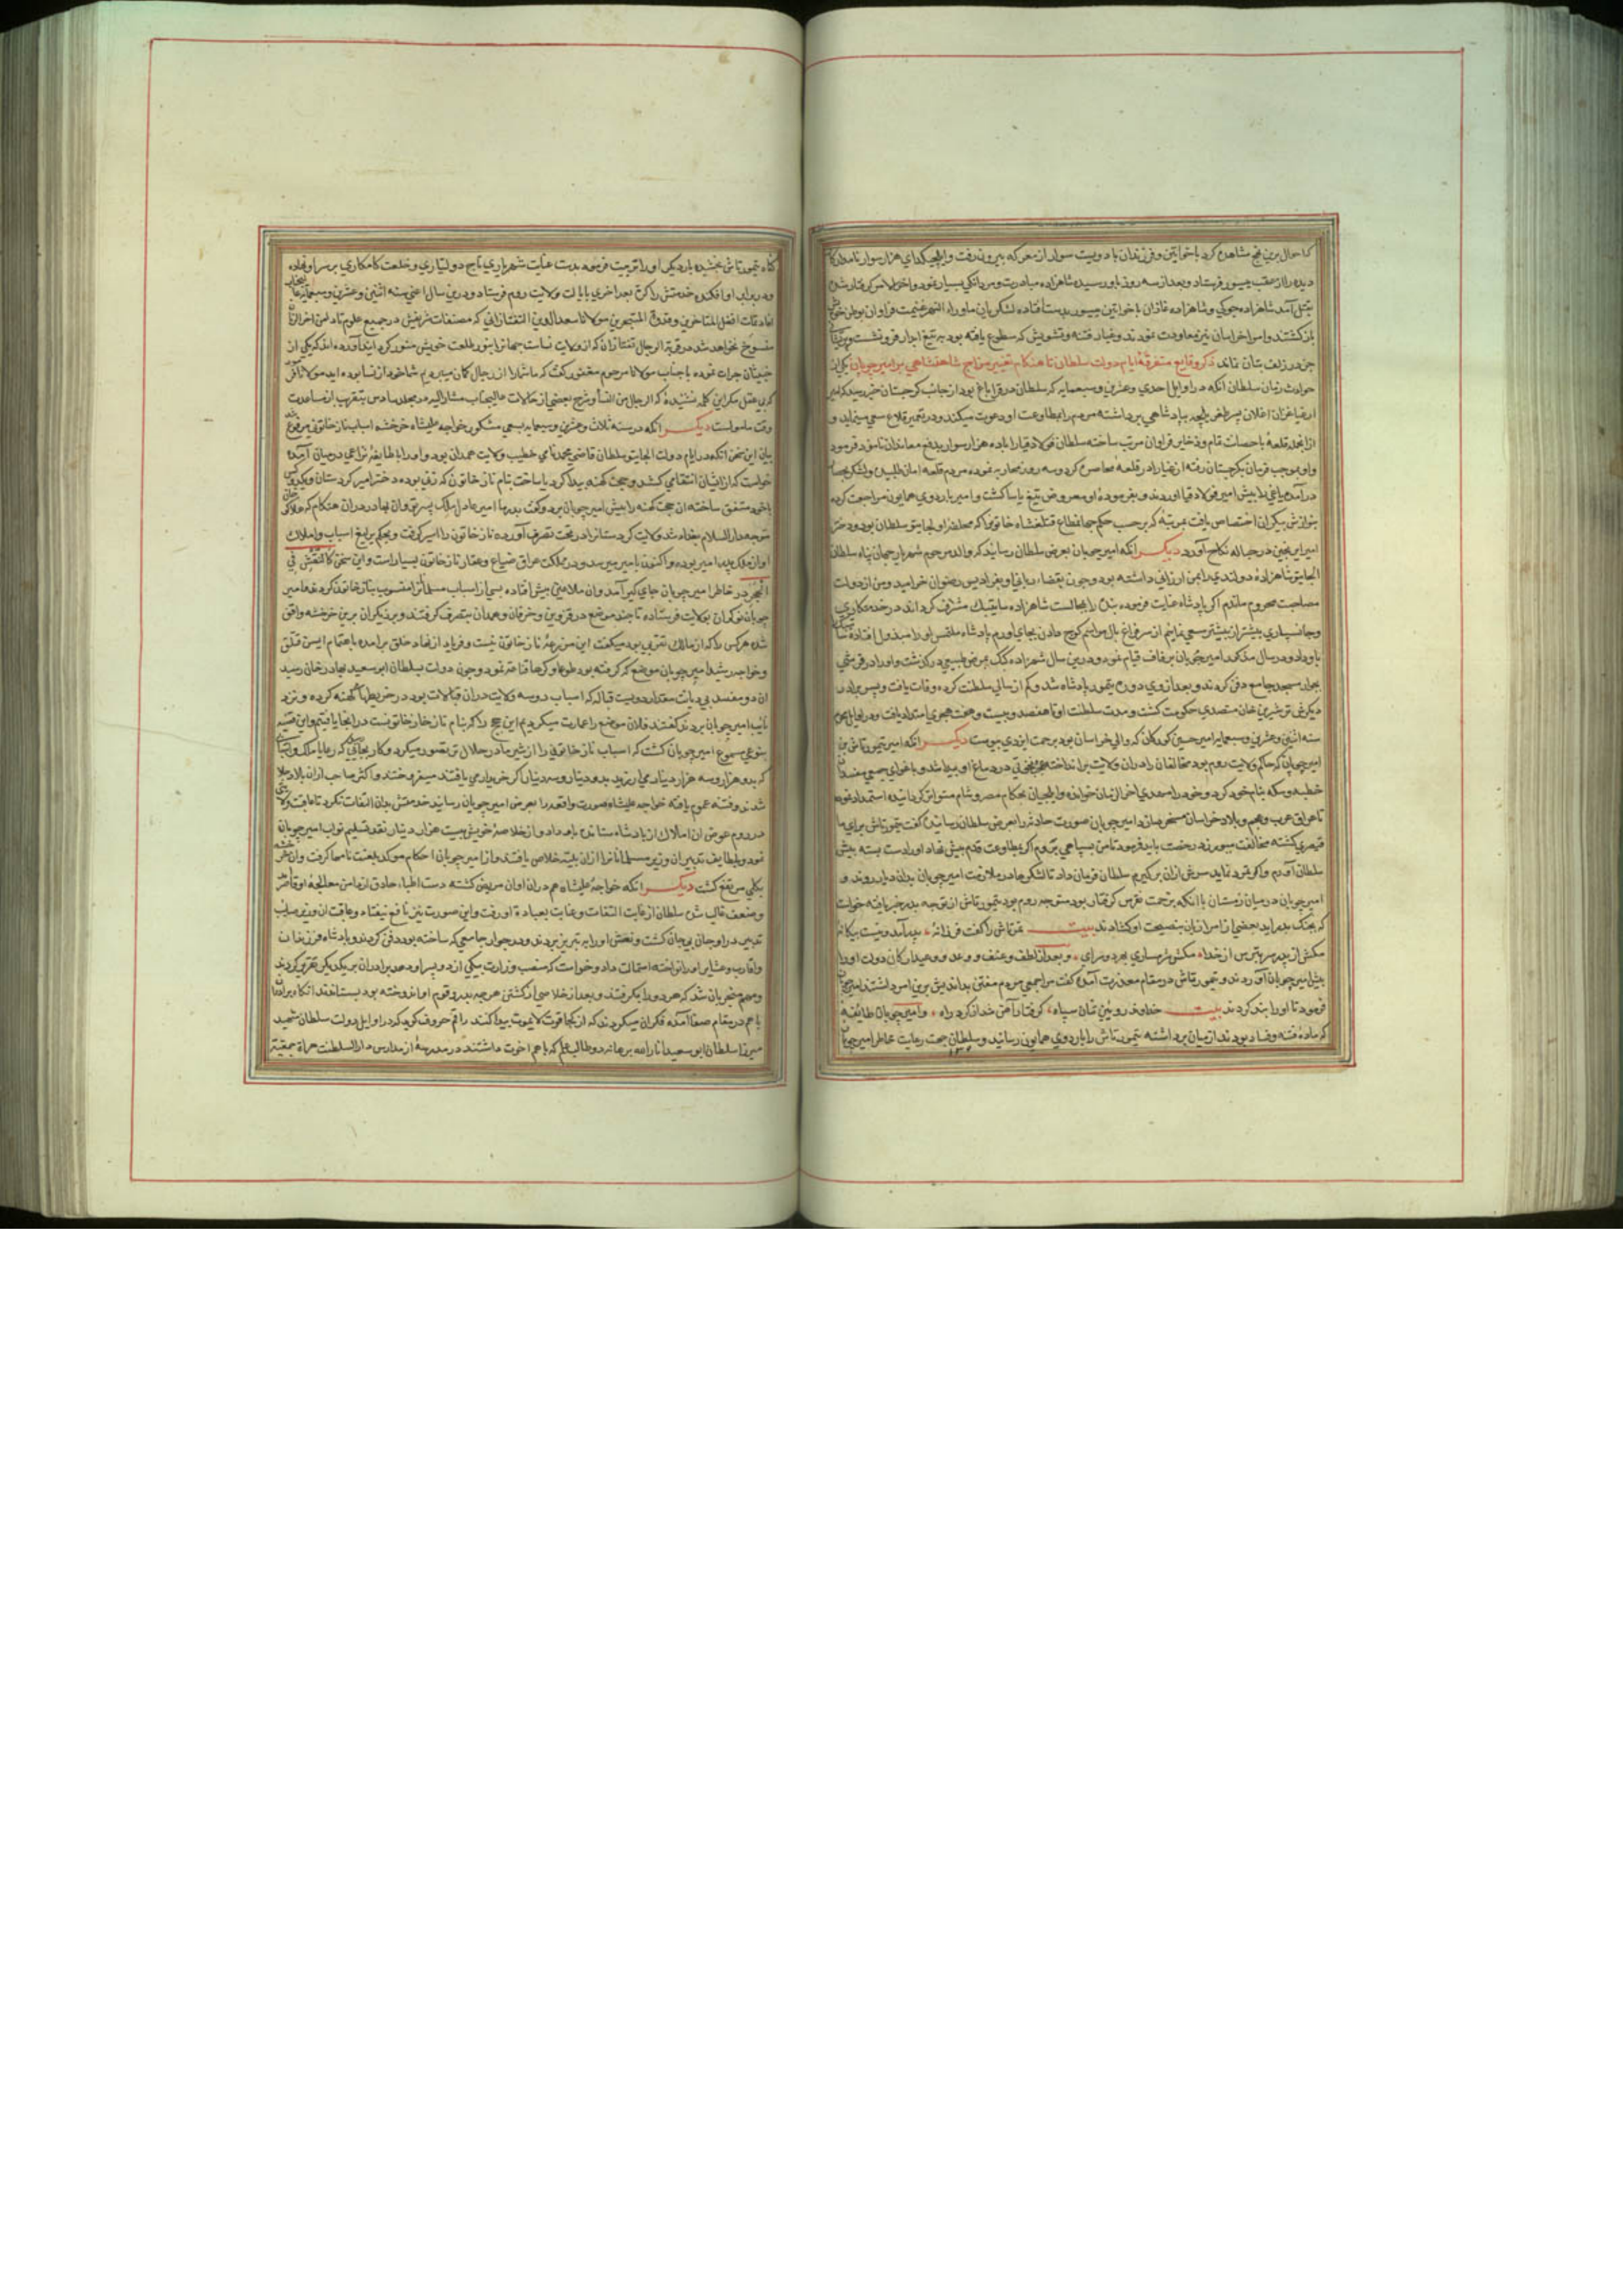 که احوال برین نهج مشاهده کرد با خواتین و فرزندان با دویست سوار از معرکه بیرون رفت و ایلجیکدای هزار سوار نامدار
دیده را از عقب فرستاد و بعد از سه روز باو رسیده شاهزاده مبادرت و مردانگی بسیار نمود و اخر الامر گرفتار شده
بقتل آمد شاهزاده جوکی و شاهزاده غازان با خواتین بدست افتاده لشکریان ماوراء النهر غنیمت فراوان بوطن خویش
بازگشتند و امرا خراسان نیز معاودت نمودند و غبار فتنه و تشویش که سطوع یافته بود به تیغ ابدار فرو نشست و
جز در زلف بتان نماند ذکر وقایع متفرقهٔ ایام دولت سلطان تا هنگام تغییر مزاج شاهنشاهی بر امیر چوپان یکی از
حوادث زمان سلطان آنکه در اوایل احدی و عشرین و سبعمایه که سلطان در قراباغ بود از جانب کرجستان خبر رسید که
اغلان پسر بپادشاهی برداشته مردم را بمطاوعت او دعوت میکند و در تعمیر قلاع سعی مینماید و
از انجمله قلعهٔ با حصانت تمام و ذخایر فراوان مرتب ساخته سلطان فولاد قیا را با ده هزار سوار بدفع معاندان نامزد فرمود
و او بموجب فرمان بکرجستان رفته را در قلعهٔ محاصره کرد و سه روز محاربه نموده مردم قلعه امان طلبیدند و لشکر
در آمده یاغی را پیش امیر فولاد قیا آوردند و بفرموده او معروض تیغ یاسا گشت و امیر باردوی همایون مراجعت کرده
بنوازش بیکران اختصاص یافت بمرتبهٔ که بر حسب حکم جهانمطاع قتلغشاه خاتون را که اولجایتو سلطان بود و دختر
امیر ایرنجین در حباله نکاح آورد دیگر آنکه امیر چوپان بعرض سلطان رسانید که والد مرحوم شهریار جهان پناه سلطان
الجایتو شاهزاده دولندی را بمن ارزانی داشته بود و چون بقضاء ربانی او بفرادیس رضوان خرامید و من از دولت
مصاهرت محروم ماندم اگر پادشاه عنایت فرموده بنده را بمجالست شاهزاده ساتی بیک مشرف گرداند در خدمتکاری
و جانسپاری بیشتر از بیشتر سعی نمایم از سر فراغ بال مراسم کوچ دادن بجای اورم پادشاه ملتمس او را مبذول افتاده
باو داد و در سال مذکور امیر چوپان بزفاف قیام نمود و درین سال شهزاده کبک بمرض طبیعی درگذشت و او را در قرشی
بجوار مسجد جامع دفن کردند و بعد از وی دوره تیمور پادشاه شد و کم از سالی سلطنت کرده وفات یافت و پس برادر
دیگرش ترمشیرین خان متصدی حکومت گشت و مدت سلطنت او تا هفتصد و بیست و هفت هجری امتداد یافت و در اوایل
سنه اثنین و عشرین و سبعمایه امیر حسین کورکان که والی خراسان بود برحمت ایزدی پیوست دیگر آنکه امیر تیمورتاش بن
امیر چوپان که حاکم ولایت روم بود مخالفان را در ان ولایت برانداخته نخوتی در دماغ او پیدا شد و باغوای جمعی مفسدان
خطبه و سکه بنام خود کرد و خود را مهدی آخر الزمان خوانده و ایلچیان بحکام مصر و شام متواتر گردانیده استمداد نمود
تا عراق عرب و عجم و بلاد خراسان مسخر سازد امیر چوپان صورت حادثه را بعرض سلطان رسانیده گفت تیمورتاش برای ما
گشته مخالفت میورزد رخصت باید فرمود تا من بسپاهی بروم اگر بمطاوعت قدم پیش نهاد او را دست بسته پیش
سلطان آورم و اگر تمرد نماید سرش از تن برگیرم سلطان فرمان داد تا لشکرها در ملازمت امیر چوپان بدان دیار روند و
امیر چوپان در میان زمستان با آنکه بزحمت نقرس گرفتار بود متوجه روم بود تیمورتاش از توجه پدر خبر یافته خواست
که بجنگ پدر اید بعضی از امرا زبان بنصیحت او گشادند بیت تمرتاش را گفت فرزانهٔ • پدر آمد و نیست بیگانهٔ
مکش از پدر سر بترس از خدا • مکش شرمساری بهر دو سرای • و بعد از لطف و عنف و وعد و وعید ارکان دولت او را
پیش امیر چوپان آوردند و تیمورتاش در مقام معذرت آمده گفت مرا جمعی مردم مفتن بداندیش برین امر داشتند امیر چوپان
فرمود تا او را بند کردند بیت خداوند رویین تنان سپاه • گرفتار آهن شد از گرد راه • و امیر چوپان طائفهٔ
که مادهٔ فتنه و فساد بودند از میان برداشته تیمورتاش را باردوی همایون رسانید و سلطان جهت رعایت خاطر امیر چوپان
گناه تیمورتاش بخشیده بار دیگر او را تربیت فرموده بدست عنایت شهریاری تاج دولتیاری و خلعت کامکاری بر سر او نهاده
و در بر او افکنده خدمتش را کرة بعد اخری بایالت ولایت روم فرستاد و درین سال اعنی سنه اثنی و عشرین و سبعمایه
افضل المتاخرین و قدوة المتبحرین مولانا سعد الدین التفتازانی که مصنفات شریفش در جمیع علوم تا دامن اخر الزمان
منسوخ نخواهد شد در قریهٔ الرجال تفتازان که از ولایت نساست جهان را بنور طلعت خویش منور کرد آورده اند که یکی از
خبیثان جرات نموده با جناب مولانا مرحوم مغفور گفت که ما شما را از رجال گمان میبردیم شما خود از نسا بوده اید مولانا
که بی عقل مگر این کلمه نشنیدهٔ که الرجال من النسا و شرح بعضی از حالات عالیجناب مشار الیه در مجلد سادس بتقریب از مساعدت
وقت مامولست دیگر آنکه در سنه ثلاث و عشرین و سبعمایه بسعی مشکور خواجه علیشاه خرخشه اسباب ناز خاتونی مرفوع شد
بیان این سخن آنکه در ایام دولت الجایتو سلطان قاضی محمد نامی خطیب ولایت همدان بود و او را با طایفهٔ نزاعی در میان آمده
خواست که از ایشان انتقامی کشد و حجت کهنه پیدا کرد یا ساخت بنام ناز خاتون که زنی بوده دختر امیر کردستان و
باخود متفق ساخته ان حجت کهنه را پیش امیر چوپان برد و گفت پدر ما امیر عادل ملک پسر توقان بهادر در ان هنگام که هلاکو خان
متوجه دار السلام بغداد شد ولایت کردستان را در تحت تصرف آورده ناز خاتون را اسیر گرفت و بحکم یرلیغ اسباب و املاک
او ازان ملک پدر امیر بوده و اکنون بامیر میرسد و در مملکت عراق ضیاع و عقار ناز خاتون بسیار است و این سخن کالنقش فی
الحجر در خاطر امیر چوپان جای گیر آمد و ان ملاعین پیش افتاده بسی از اسباب مسلمانان را منسوب بناز خاتون کردند و امیر
چوپان نوکران بولایت فرستاده تا چند موضع در قزوین و خرقان و همدان بتصرف گرفتند و بزرگران برین خرخشه واقف
شده هر کس را که از مالک نفرتی بود میگفت این مزرعهٔ ناز خاتون نیست و فریاد از نهاد خلق برامده باهتمام ایسن قتلغ
و خواجه رشید امیر چوپان بموضع که گرفته بود طوعا و کرها قناعت نمود و چون دولت بسلطان ابو سعید بهادر خان رسید
ان دو مفسد بی دیانت مقدار دویست قباله که اسباب دو سه ولایت در ان قبالات بود در خریطها کهنه کرده و نزد
نایب امیر چوپان بردند گفتند فلان موضع را عمارت میکردیم این حجج را که بنام ناز خاتونست در انجا یافتیم و این قضیه
بنوعی مسموع امیر چوپان گشت که اسباب ناز خاتونی را از شیر مادر حلال تر تصور میکرد و کار بجایی رسید که رعایا ملک و ضیاعی
که بدو هزار و سه هزار دینار می ارزید بدو دینار و سه دینار اگر خریداری می یافتند میفروختند و اکثر صاحب ازان بلاد جلا
شدند و فتنه عموم یافته خواجه علیشاه صورت واقعه را بعرض امیر چوپان رسانید خدمتش بدان التفات نکرد تا عاقبت ولایتی
در روم عوض ان املاک از پادشاه ستانده باو داد و از خلاصهٔ خویش بیست هزار دینار نقد تسلیم نواب امیر چوپان
نمود و بلطایف تدبیر ان وزیر مسلمانان را ازان بلیه خلاص یافتند و از امیر چوپان احکام موکد بلعنت نامها گرفت و ان خرخشه
بکلی مرتفع گشت دیگر آنکه خواجه علیشاه هم در ان اوان مریض گشته دست اطباء حاذق از دامن معالجهٔ او قاصر
و ضعف غالب شد سلطان از غایت التفات و عنایت بعیادة او رفت و این صورت نیز نافع نیفتاد و عاقبت ان وزیر صایب
تدبیر در اوجان بی جان گشت و نعش او را به تبریز بردند و در جوار جامعی که ساخته بود دفن کردند و پادشاه فرزندان
و اقارب و عشایر او را نواخته استمالت داد و خواست که منصب وزارت بیکی از دو پسر او دهد برادران بر یکدیگر تقریر کردند
و مهم منجر بان شد که هر دو را بگرفتند و بعد از خلاصی از کشتن هر چه پدر و قوم او اندوخته بود بستانفد انگاه برادران
با هم در مقام صفا آمده فکر ان میکردند که از کجا قوت لایموت پیدا کنند راقم حروف گوید که در اوایل دولت سلطان شهید
میرزا سلطان ابو سعید انار الله برهانه دو طالب علم که با هم اخوت داشتند در مدرسهٔ از مدارس دار السلطنت هراة